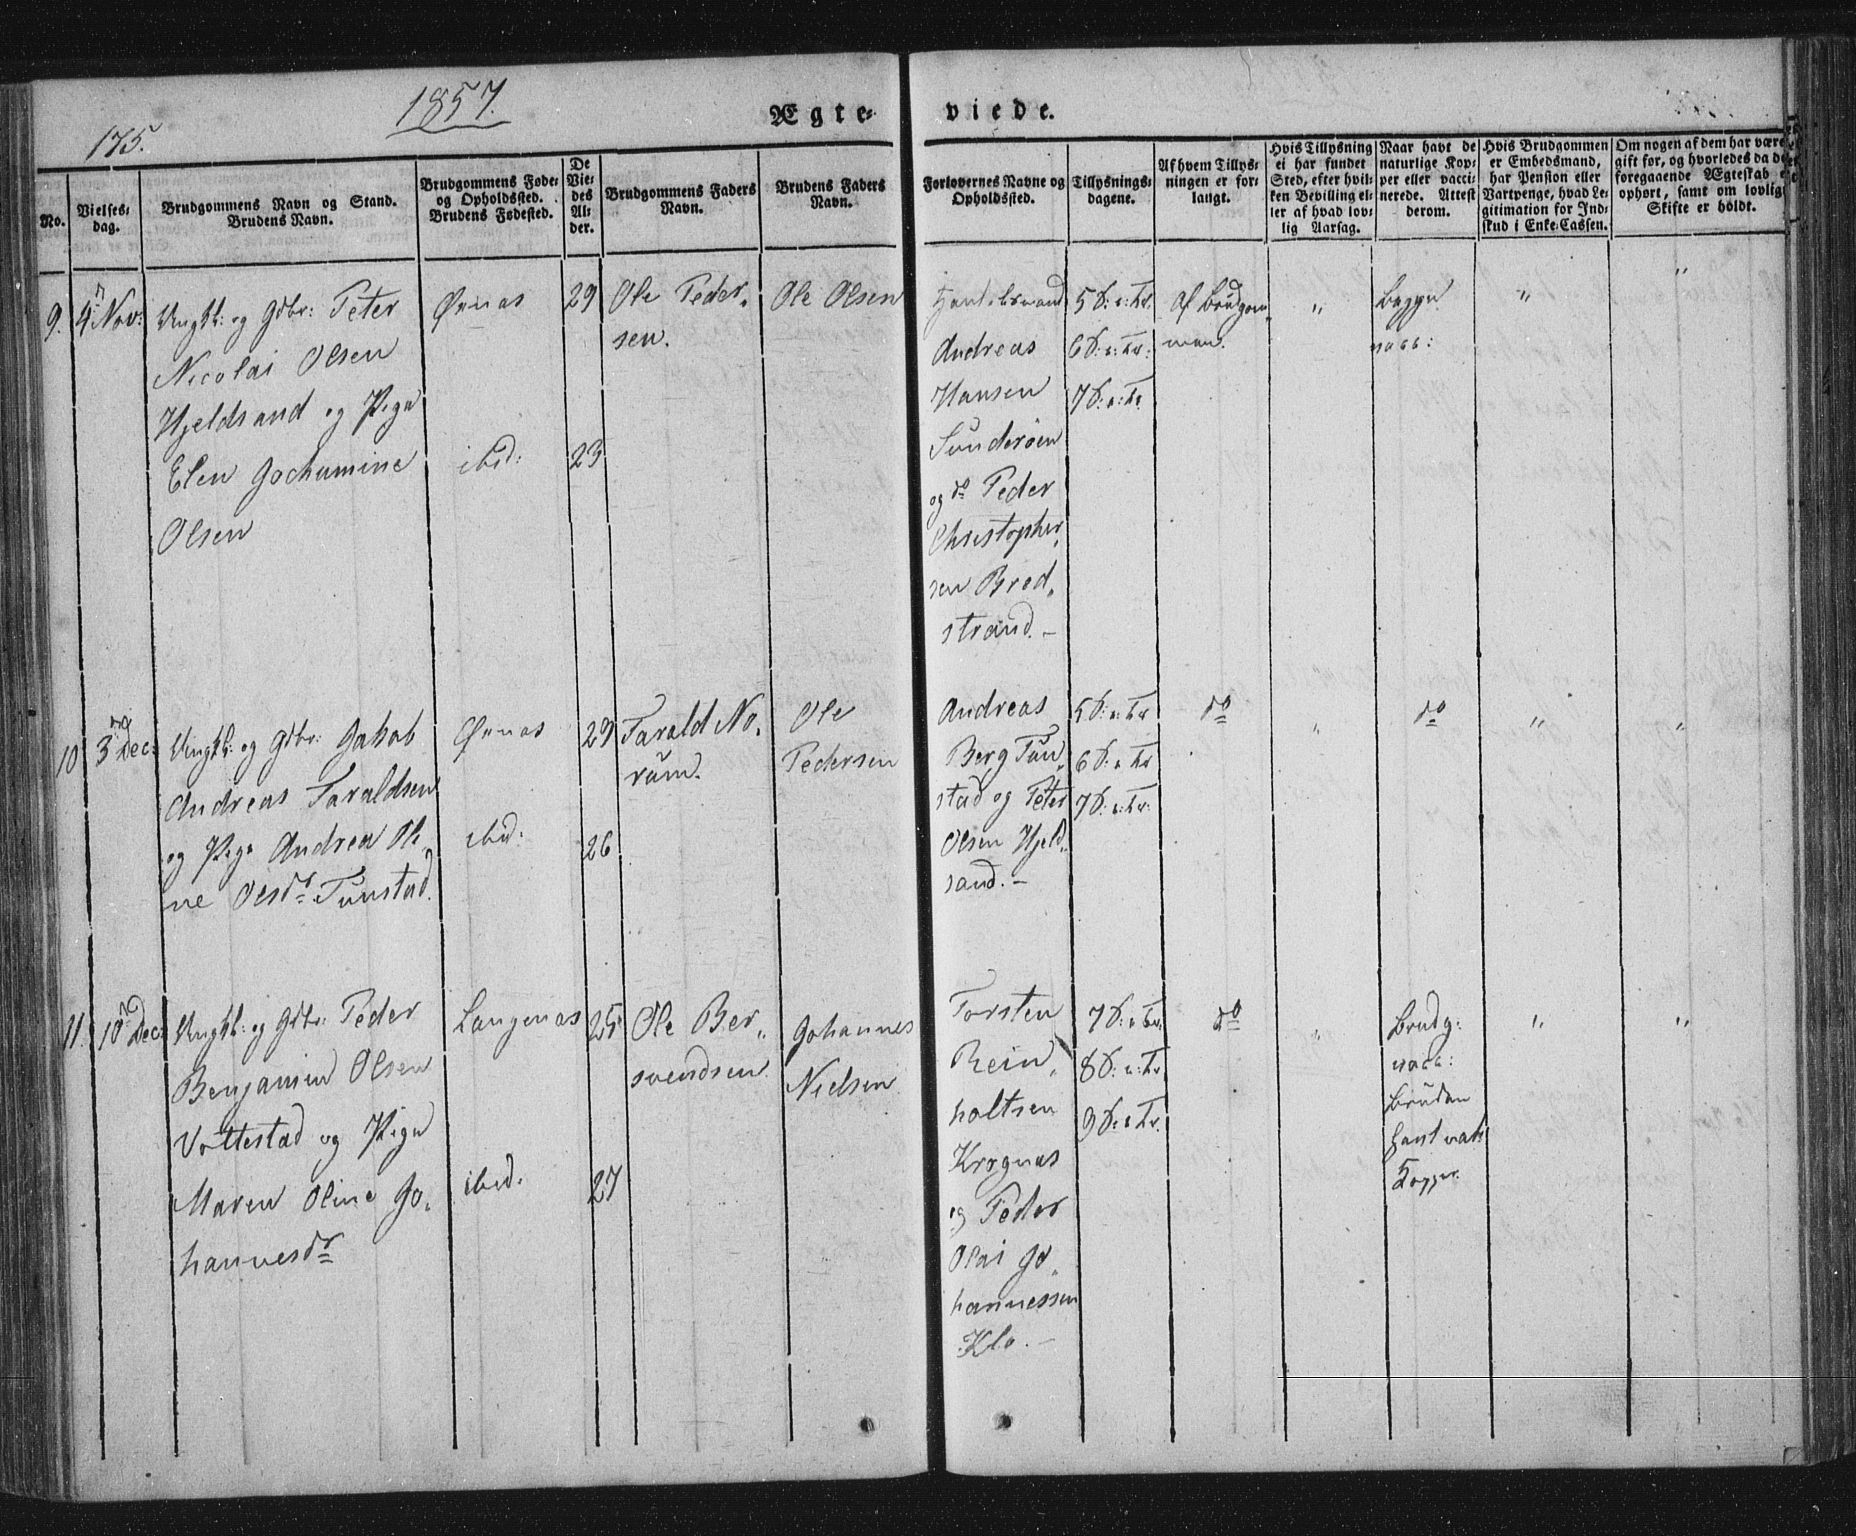 1857.
175.
Ægteviede.
No.
Vielsesdag.
Brudgommens Navn og Stand.
Brudens Navn.
Brudgommens Føde-
og Opholdssted.
Brudens Fødested.
De
Vie-
des
Al-
der.
Brudgommens Faders
Navn.
Brudens Faders
Navn.
Forlovernes Navne og
Opholdssted.
Tillysnings-
dagene.
Af hvem Tillys-
ningen er for-
langt.
Hvis Tillysning
ei har fundet
Sted, efter hvil-
ken Bevilling el-
ler af hvad lov-
lig Aarsag.
Naar havt de
naturlige Kop-
per eller vacci-
nerede. Attest
derom.
Hvis Brudgommen
er Embedsmand,
har Pension eller
Vartpenge, hvad Le-
gitimation for Ind-
skud i Enke-Cassen.
Om nogen af dem har være
gift før, og hvorledes da de
foregaaende Ægteskab e
ophørt, samt om lovlig
Skifte er holdt.
9. 4 Nov: Ungk: og Gdbr: Peter
Nicolai Olsen
Hjeldsand og Pige
Elen Jochumine
Olsen
Øxnæs
ibid:
29
23
Ole Peder-
sen.
Ole Olsen
Andreas
Hansen
Sunderøen
og do Peder
Christopher-
sen Bred-
strand. —
5 S: e: Tr.
6 S: e: Tr:
7 S: e: Tr.
af Brudgom-
men.
"
Begge
vacc:
"
"
10 3 Dec: Ungk: og Gdbr: Jakob
Andreas Taraldsen
og Pige Andrea Ole-
ne Olsdr Tunstad.
Øxnæs
ibid:
29
26
Tarald No-
rum.
Ole
Pedersen
Andreas
Berg Tun-
stad og Peter
Olsen Hjeld-
sand. —
5 S: e: Tr
6 S: e Tr
7 S: e: Tr:
do
"
do
"
"
11. 10 Dec: Ungk: og Gdbr: Peder
Benjamin Olsen
Vottestad og Pige
Maren Oline Jo-
hannesdr
Langenæs
ibid.
25
27
Ole Ber-
svendsen
Johannes
Nielsen
Torsten
Rein-
holtsen
Krognæs
og Peder
Olai Jo-
hannessen
Klo. —
7 S: e Tr:
8 S: e: Tr
9 S: e Tr.
do
"
Brudg:
vacc:
Bruden
havt nat:
Kopper.
"
"